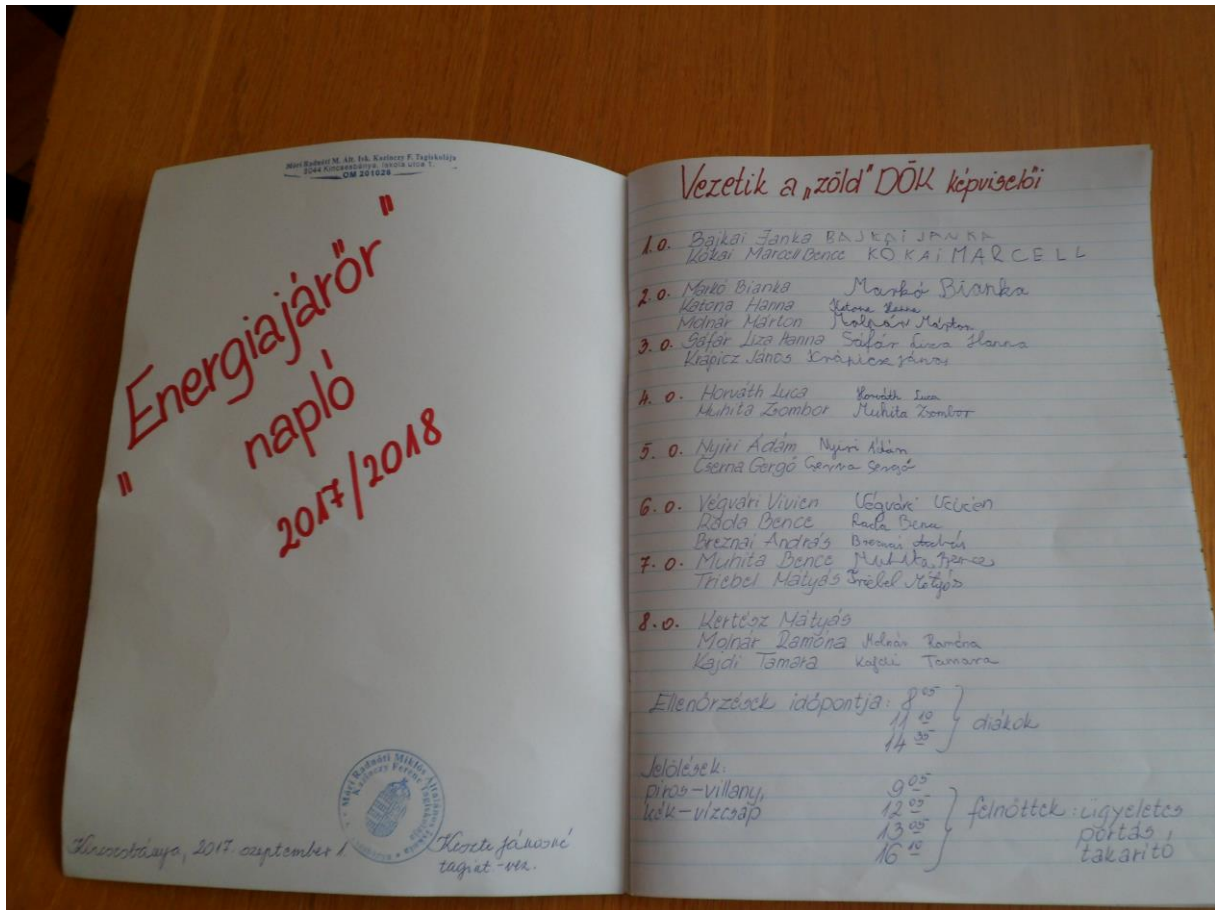 Móri Radnóti M. Ált. Isk. Kazinczy F. Tagiskolája
8044 Kincsesbánya, Iskola utca 1.
OM 201028
"Energiajárőr"
napló
2017/2018
Móri Radnóti Miklós Általános Iskola
Kazinczy Ferenc Tagiskolája
Kincsesbánya, 2017. szeptember 1.
Keszte Jánosné
tagint.-vez.
Vezetik a „zöld" DÖK képviselői
1. o. Bajkai Janka BAJKAI JANKA
Kókai Marcell Bence KÓKAI MARCELL
2. o. Markó Bianka Markó Bianka
Katona Hanna Katona Hanna
Molnár Márton Molnár Márton
3. o. Sáfár Liza Hanna Sáfár Liza Hanna
Krápicz János Krápicz János
4. o. Horváth Luca Horváth Luca
Muhita Zsombor Muhita Zsombor
5. o. Nyiri Ádám Nyiri Ádám
Cserna Gergő Cserna Gergő
6. o. Végvári Vivien Végvári Vivien
Rada Bence Rada Bence
Breznai András Breznai András
7. o. Muhita Bence Muhita Bence
Triebel Mátyás Triebel Mátyás
8. o. Kertész Mátyás
Molnár Ramóna Molnár Ramóna
Kajdi Tamara Kajdi Tamara
Ellenőrzések időpontja: 8 05
11 10 diákok
14 35
Jelölések:
piros-villany, 9 05
kék-vízcsap 12 05 felnőttek: ügyeletes
13 05 portás
16 10 takarító